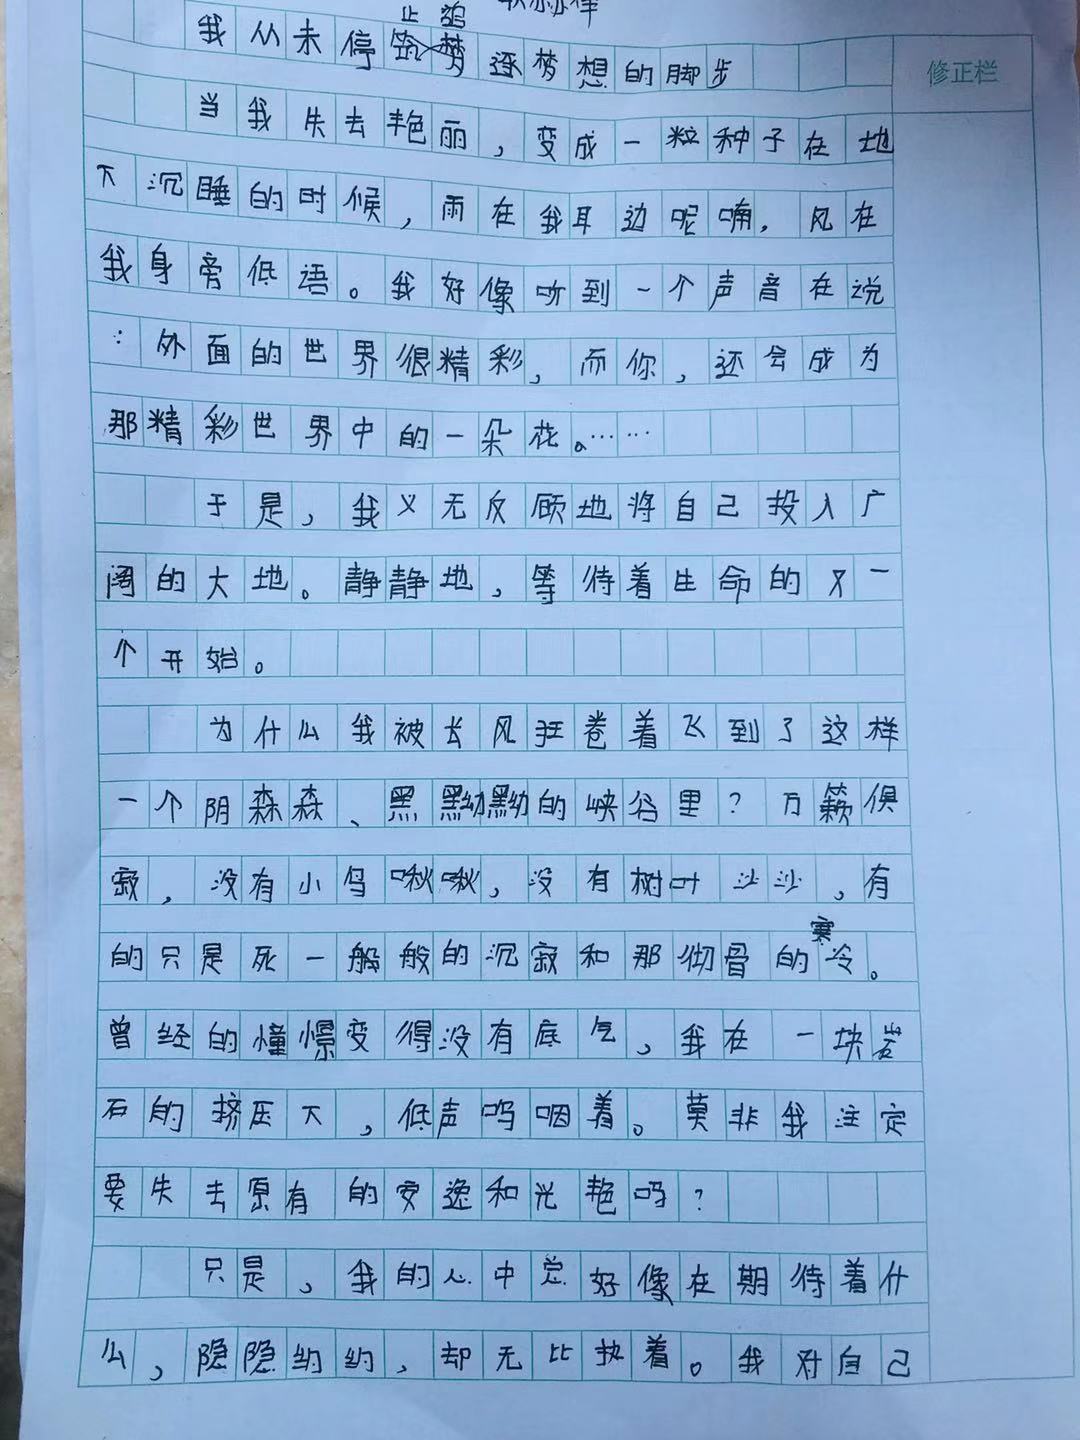 止 追
我从未停筑梦逐梦想的脚步
修正栏
当我失去艳丽，变成一粒种子在地
下沉睡的时候，雨在我耳边呢喃，风在
我身旁低语。我好像听到一个声音在说
：外面的世界很精彩，而你，还会成为
那精彩世界中的一朵花。……
于是，我义无反顾地将自己投入广
阔的大地。静静地，等待着生命的又一
个开始。
为什么我被长风狂卷着飞到了这样
一个阴森森、黑黝黝的峡谷里？万籁俱
寂，没有小鸟啾啾，没有树叶沙沙，有
寒
的只是死一般般的沉寂和那彻骨的冷。
曾经的憧憬变得没有底气，我在一块岩
石的挤压下，低声呜咽着。莫非我注定
要失去原有的安逸和光艳吗？
只是，我的心中总好像在期待着什
么，隐隐约约，却无比执着。我对自己